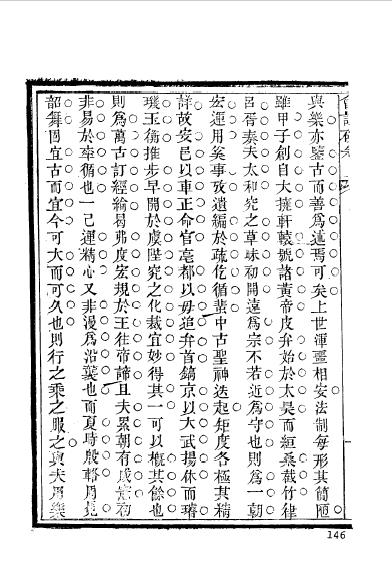 與樂亦鑒古而善爲通焉可矣上世渾噩相安法制每形其簡陋
雖甲子創自大撓軒轅號諸黃帝皮弁始於太昊而絙桑截竹律
呂胥奏夫太和究之草昧初開遠爲宗不若近爲守也則爲一朝
宏運用矣事攷遺編於疏仡循蜚中古聖神迭起矩度各極其精
詳故安邑以車正命官亳都以毋追弁首鎬京以大武揚休而璿
璣玉衡推步早開於虞陛究之化裁宜妙得其一可以概其餘也
則爲萬古訂經綸曷弗度宏規於王往帝諦且夫累朝有成憲初
非易於率循也一己運精心又非漫爲沿襲也而夏時殷輅周冕
韶舞固宜古而宜今可大而可久也則行之乘之服之與夫用樂
146